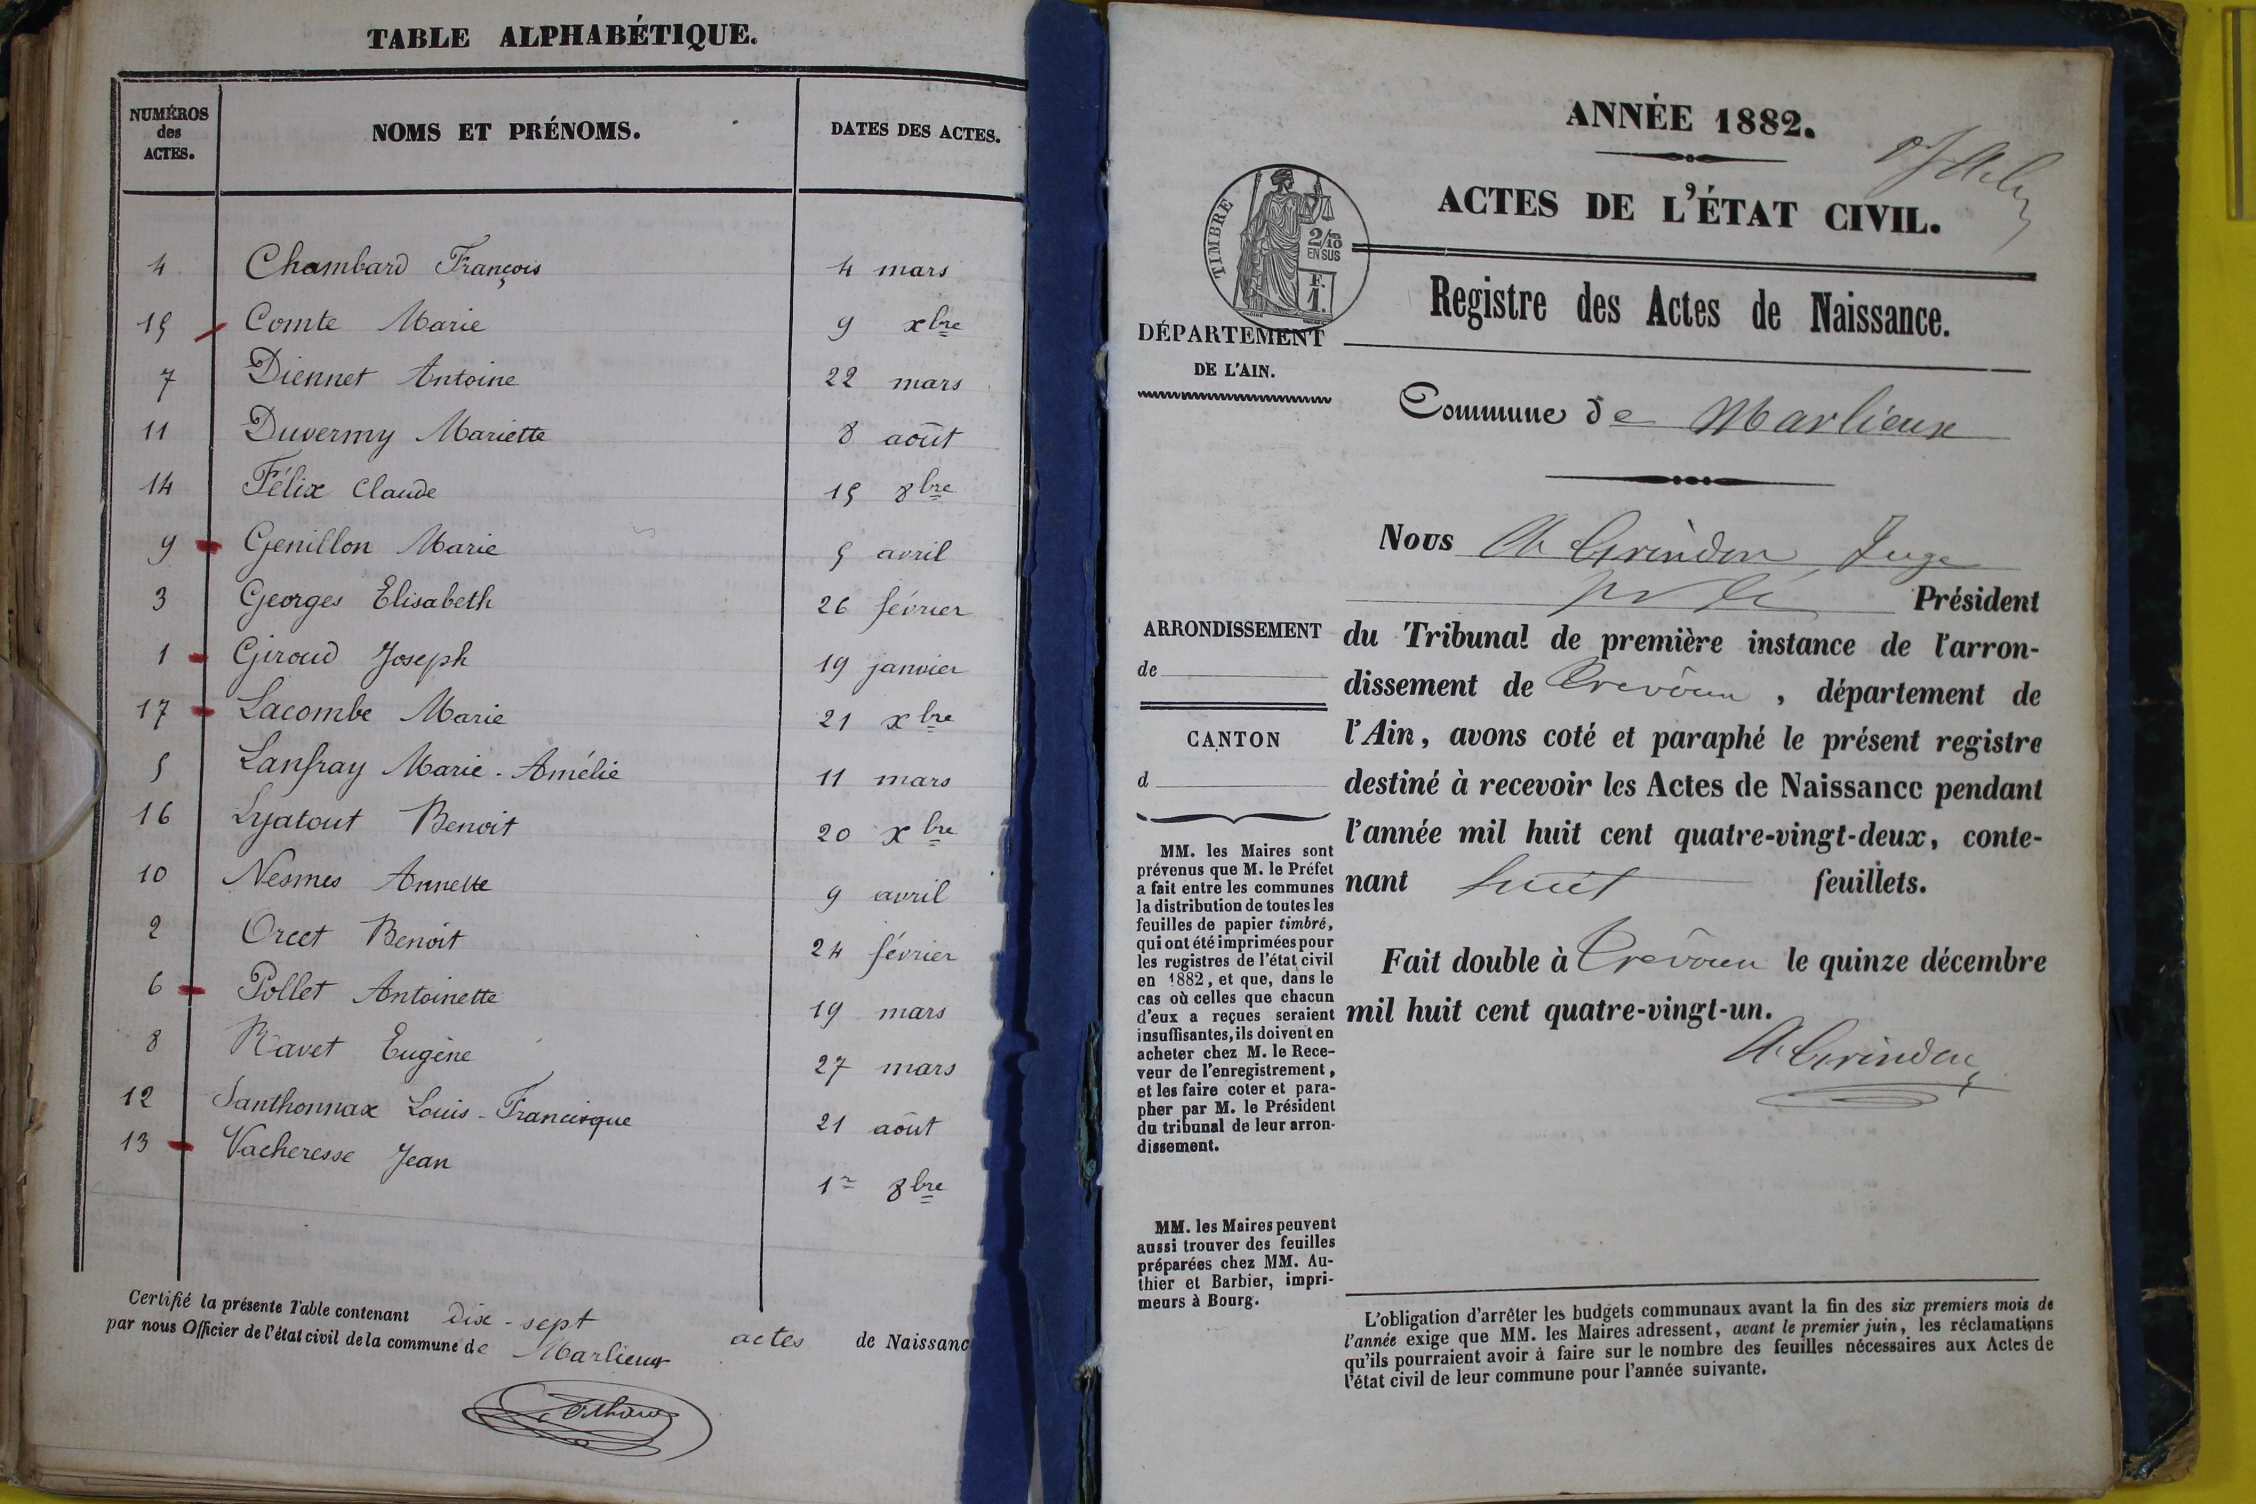 TABLE ALPHABÉTIQUE.
NUMÉROS des ACTES. NOMS ET PRÉNOMS. DATES DES ACTES.
4 Chambard François 4 mars
15 Comte Marie 9 xbre
7 Diennet Antoine 22 mars
11 Duvermy Mariette 8 août
14 Félix Claude 15 8bre
9 Genillon Marie 5 avril
3 Georges Elisabeth 26 février
1 Giroud Joseph 19 janvier
17 Lacombe Marie 21 xbre
5 Lanfray Marie-Amélie 11 mars
16 Lyatout Benoit 20 xbre
10 Nesmes Annette 9 avril
2 Orcet Benoit 24 février
6 Pollet Antoinette 19 mars
8 Ravet Eugène 27 mars
12 Santhonnax Louis-Francisque 21 août
13 Vacheresse Jean 1er 8bre
Certifié la présente Table contenant dix-sept actes de Naissanc
par nous Officier de l'état civil de la commune de Marlieux
ANNÉE 1882.
ACTES DE L'ÉTAT CIVIL.
TIMBRE
2/10
EN SUS
F.
1.
Registre des Actes de Naissance.
DÉPARTEMENT
DE L'AIN.
Commune de Marlieux
Nous Juge
Président
du Tribunal de première instance de l'arron-
dissement de Trévoux, département de
l'Ain, avons coté et paraphé le présent registre
destiné à recevoir les Actes de Naissance pendant
l'année mil huit cent quatre-vingt-deux, conte-
nant huit feuillets.
Fait double à Trévoux le quinze décembre
mil huit cent quatre-vingt-un.
ARRONDISSEMENT
de
CANTON
d
MM. les Maires sont
prévenus que M. le Préfet
a fait entre les communes
la distribution de toutes les
feuilles de papier timbré,
qui ont été imprimées pour
les registres de l'état civil
en 1882, et que, dans le
cas où celles que chacun
d'eux a reçues seraient
insuffisantes, ils doivent en
acheter chez M. le Rece-
veur de l'enregistrement,
et les faire coter et para-
pher par M. le Président
du tribunal de leur arron-
dissement.
MM. les Maires peuvent
aussi trouver des feuilles
préparées chez MM. Au-
thier et Barbier, impri-
meurs à Bourg.
L'obligation d'arrêter les budgets communaux avant la fin des six premiers mois de
l'année exige que MM. les Maires adressent, avant le premier juin, les réclamations
qu'ils pourraient avoir à faire sur le nombre des feuilles nécessaires aux Actes de
l'état civil de leur commune pour l'année suivante.